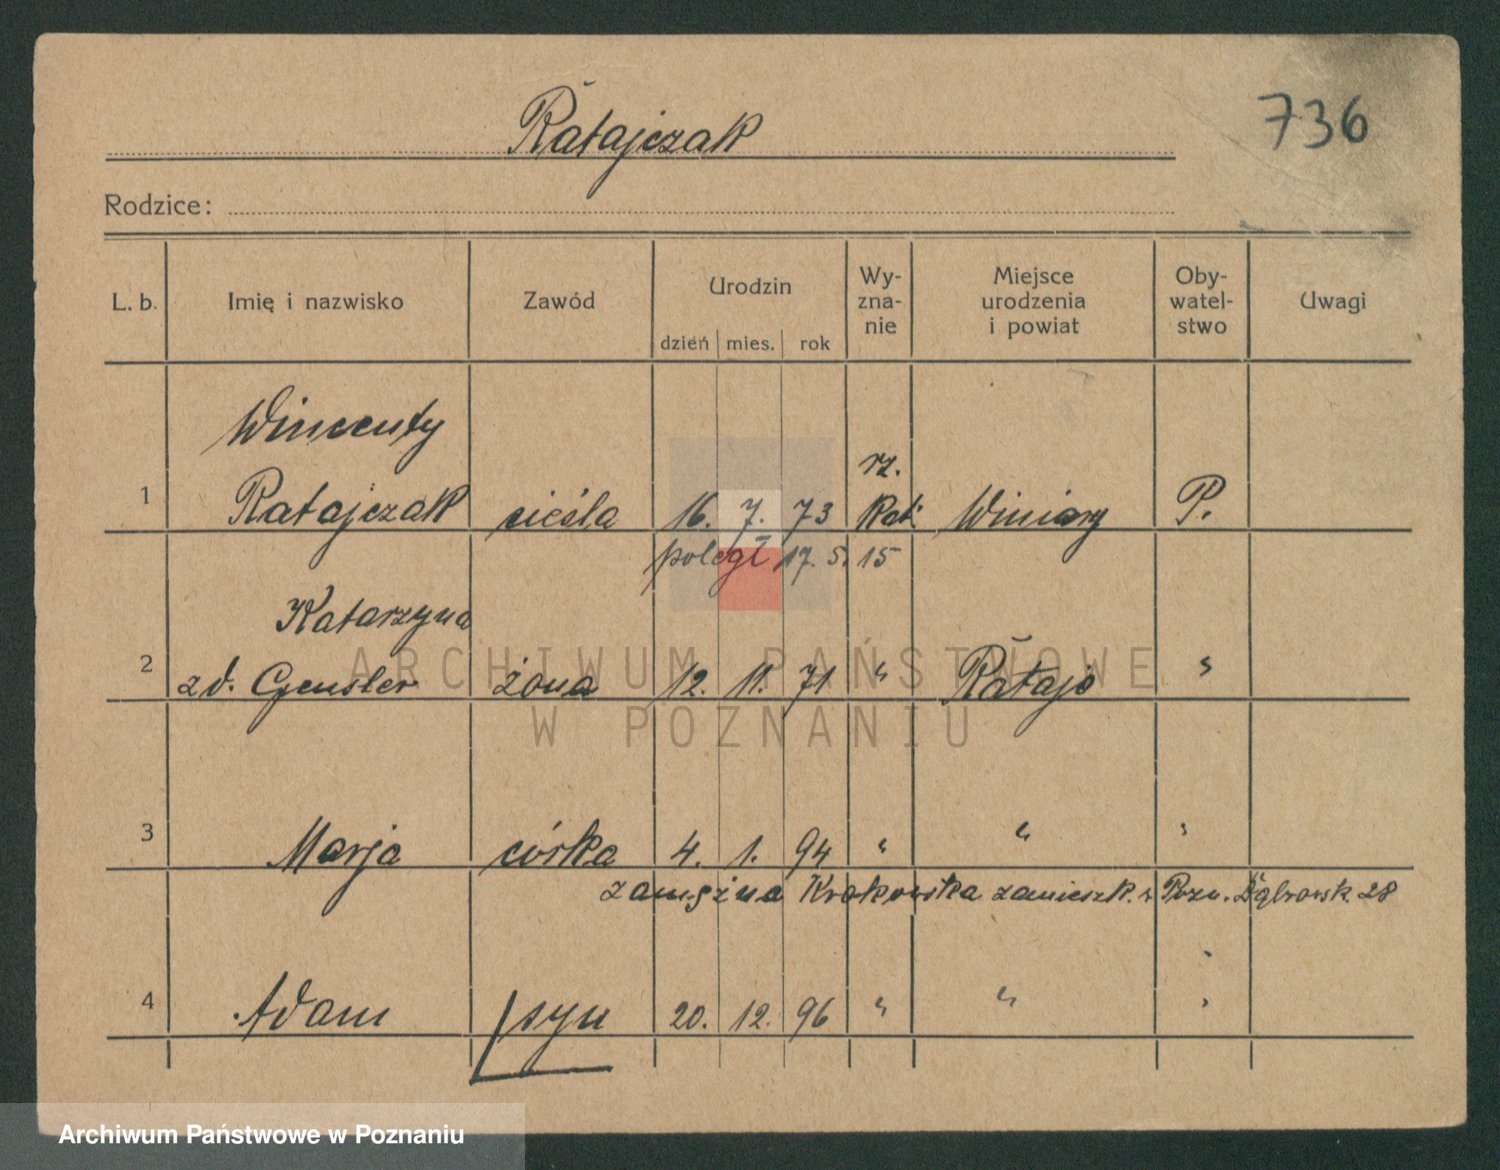 Ratajczak
736
Rodzice:
L. b. Imię i nazwisko Zawód Urodzin dzień mies. rok Wy-zna-nie Miejsce urodzenia i powiat Oby-watel-stwo Uwagi
Wincenty
rz.
1 Ratajczak cieśla 16. 7. 73 kat. Winiary P.
poległ 17. 5. 15
Katarzyna
2 zd. Gensler żona 12. 11. 71 " Rataje "
ARCHIWUM PAŃSTWOWE
W POZNANIU
3 Marja córka 4. 1. 94 " " "
zamężna Krakowska zamieszk. w Pozn. Dąbrowsk. 28
4 Adam syn 20. 12. 96 " " "
Archiwum Państwowe w Poznaniu